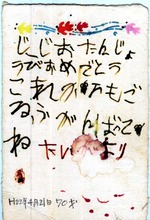 じじおたんじょ
うびおめでとう
これがもご
ろうがんばて
ね たいより
H22年4月21日 70才